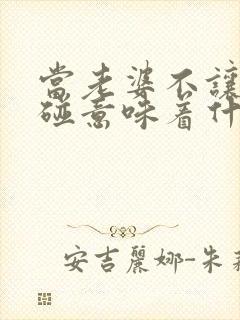 當老婆不讓
碰意味着什
安吉麗娜-朱